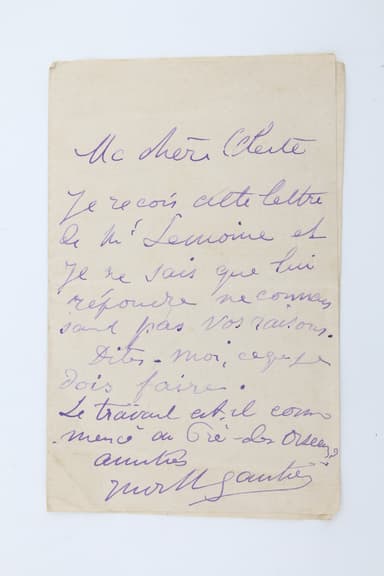 Ma chère Cleste
Je reçois cette lettre
de Mr Lemoine et
je ne sais que lui
répondre ne connais
sant pas vos raisons.
Dites-moi, ce que je
dois faire.
Le travail est-il com
mencé au Pré-des Oiseaux?
amitiés
Judith Gautier